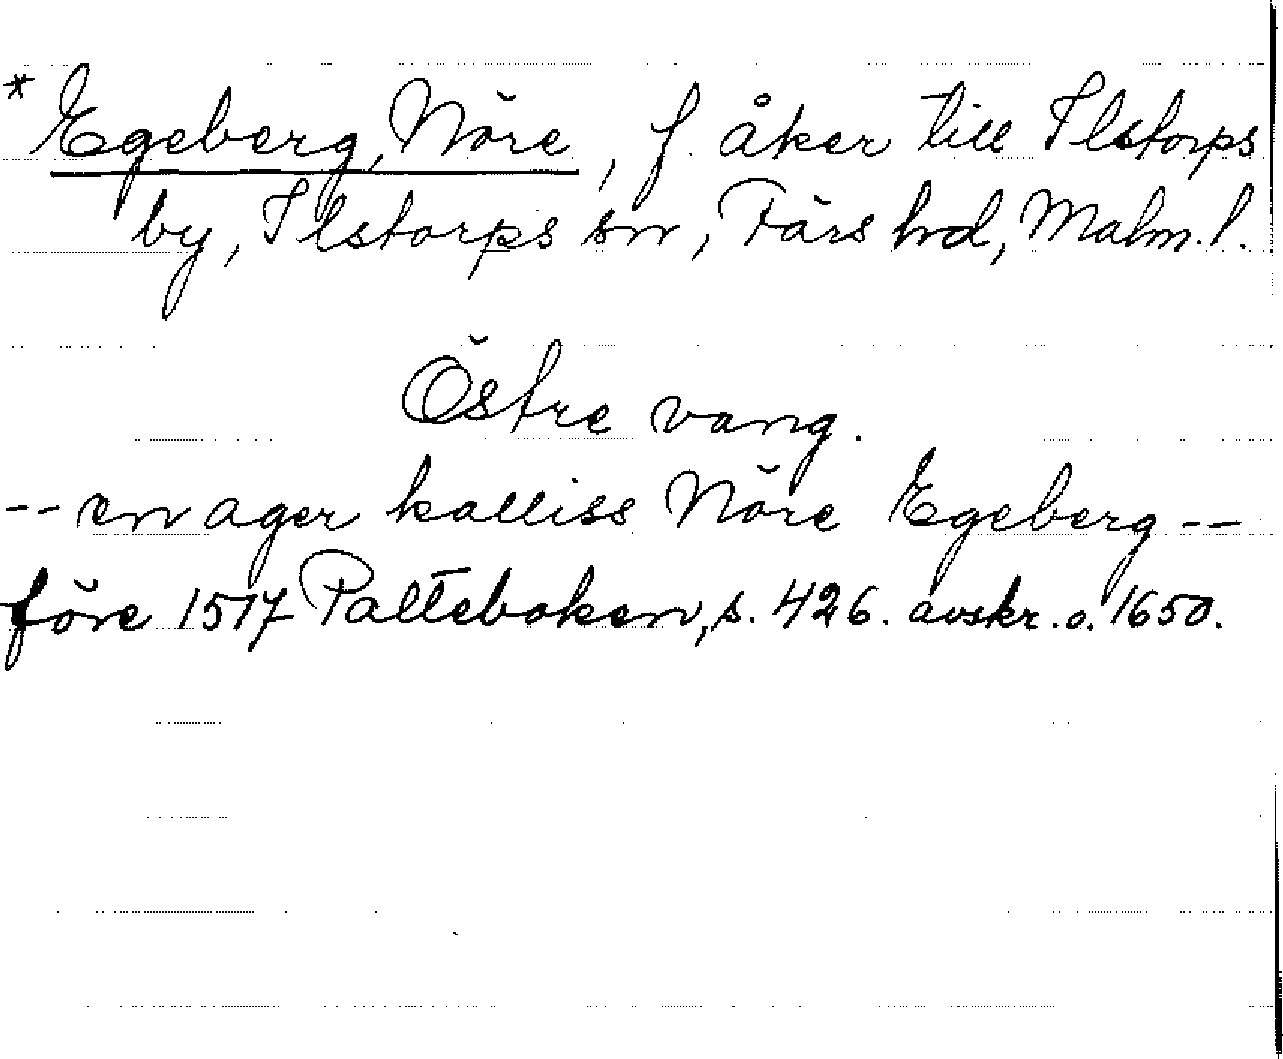 * Egeberg, Nöre, f. åker till Ilstorps
by, Ilstorps sn, Färs hd, Malm. l.
Östre vang.
-- en ager kalliss Nöre Egeberg --
före 1517 Palteboken, s. 426. avskr. o. 1650.